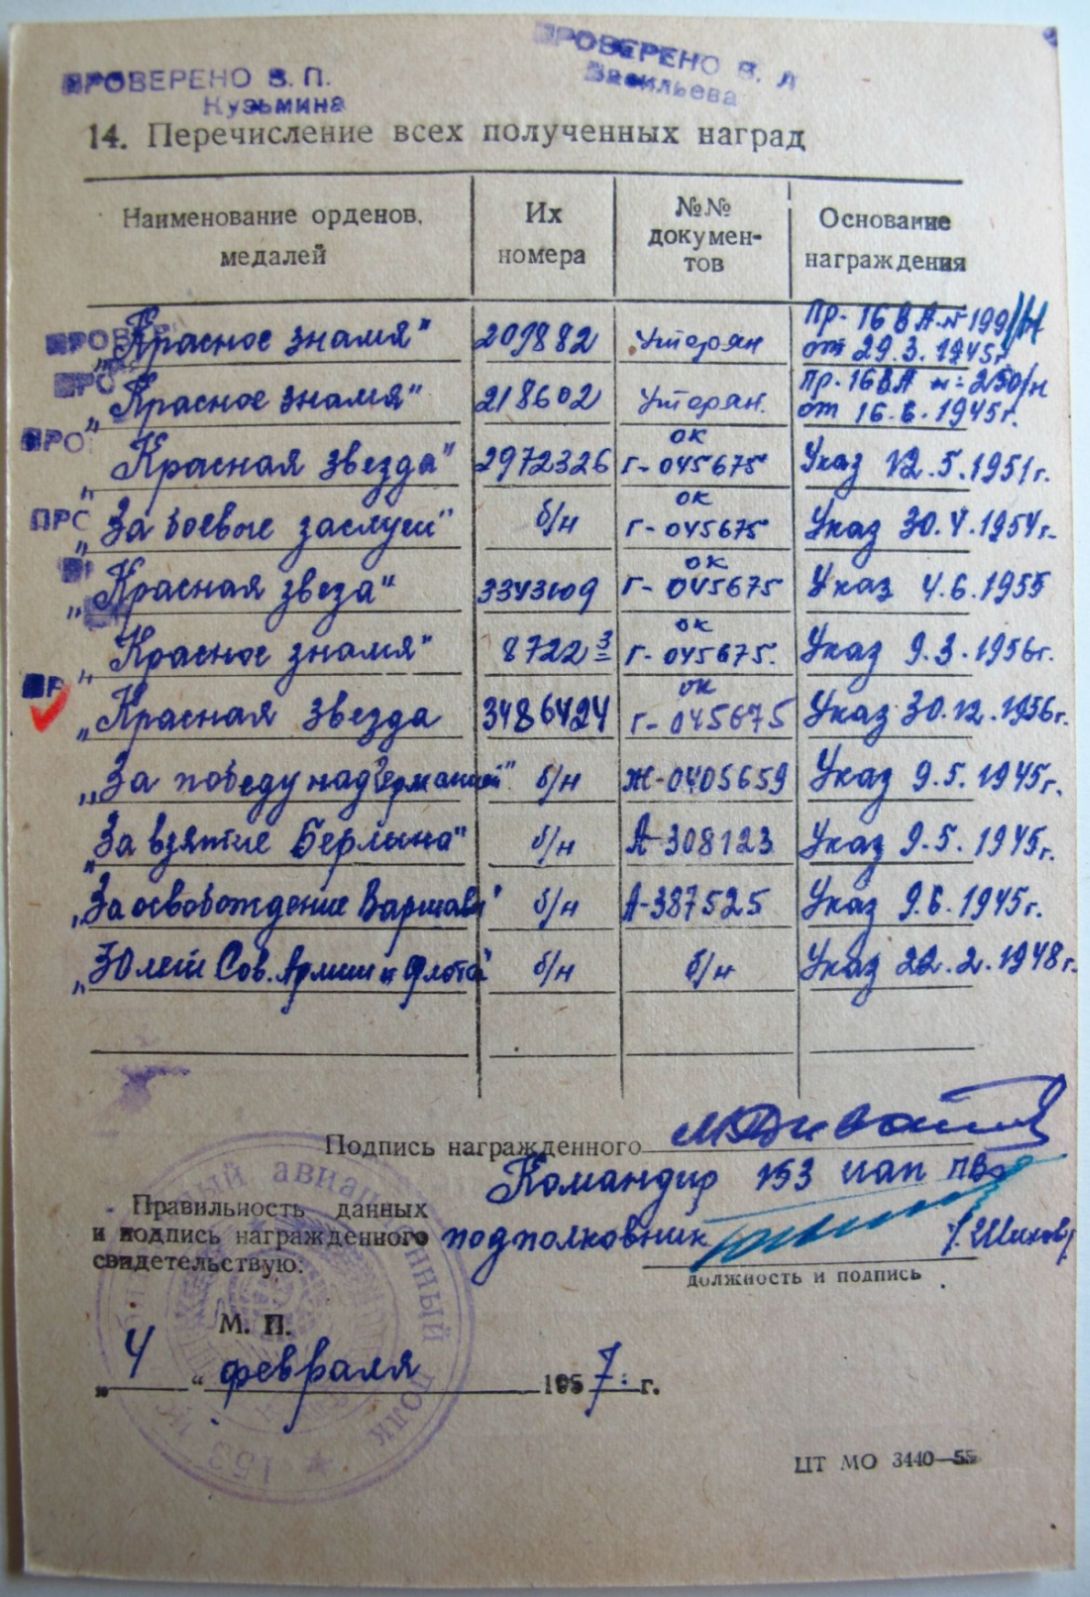 ПРОВЕРЕНО В. П.
Кузьмина
ПРОВЕРЕНО В. Л
Васильева
14. Перечисление всех полученных наград
Наименование орденов, медалей
Их номера
№№ докумен-тов
Основание награждения
ПРОВЕР "Красное знамя" 209882 Утерян Пр. 16 ВА № 199/Н от 29.3.1945г
ПРО "Красное знамя" 218602 Утерян. Пр. 16ВА н: 250/н от 16.6.1945г.
ПРО "Красная звезда" 2972326 ок Г-045675 Указ 12.5.1951г.
ПРО "За боевые заслуги" б/н ок Г-045675 Указ 30.4.1954г.
"Красная звеза" 3343609 ок Г-045675 Указ 4.6.1955
"Красное знамя" 8722 3 ок Г-045675. Указ 9.3.1956г.
ПР "Красная звезда 3486424 ок Г-045675 Указ 30.12.1956г.
"За победу над Германией" б/н Ж-0405659 Указ 9.5.1945г.
"За взятие Берлина" б/н А-308123 Указ 9.5.1945г.
"За освобождение Варшавы" б/н А-387525 Указ 9.6.1945г.
"30 лет Сов. Армии и Флота" б/н б/н Указ 22.2.1948г.
Подпись награжденного
Командир 153 иап ПВО
Правильность данных
и подпись награжденного подполковник
свидетельствую.
должность и подпись
М. П.
„4“ февраля 1957. г.
авиационный полк 153
ЦТ МО 3440—55